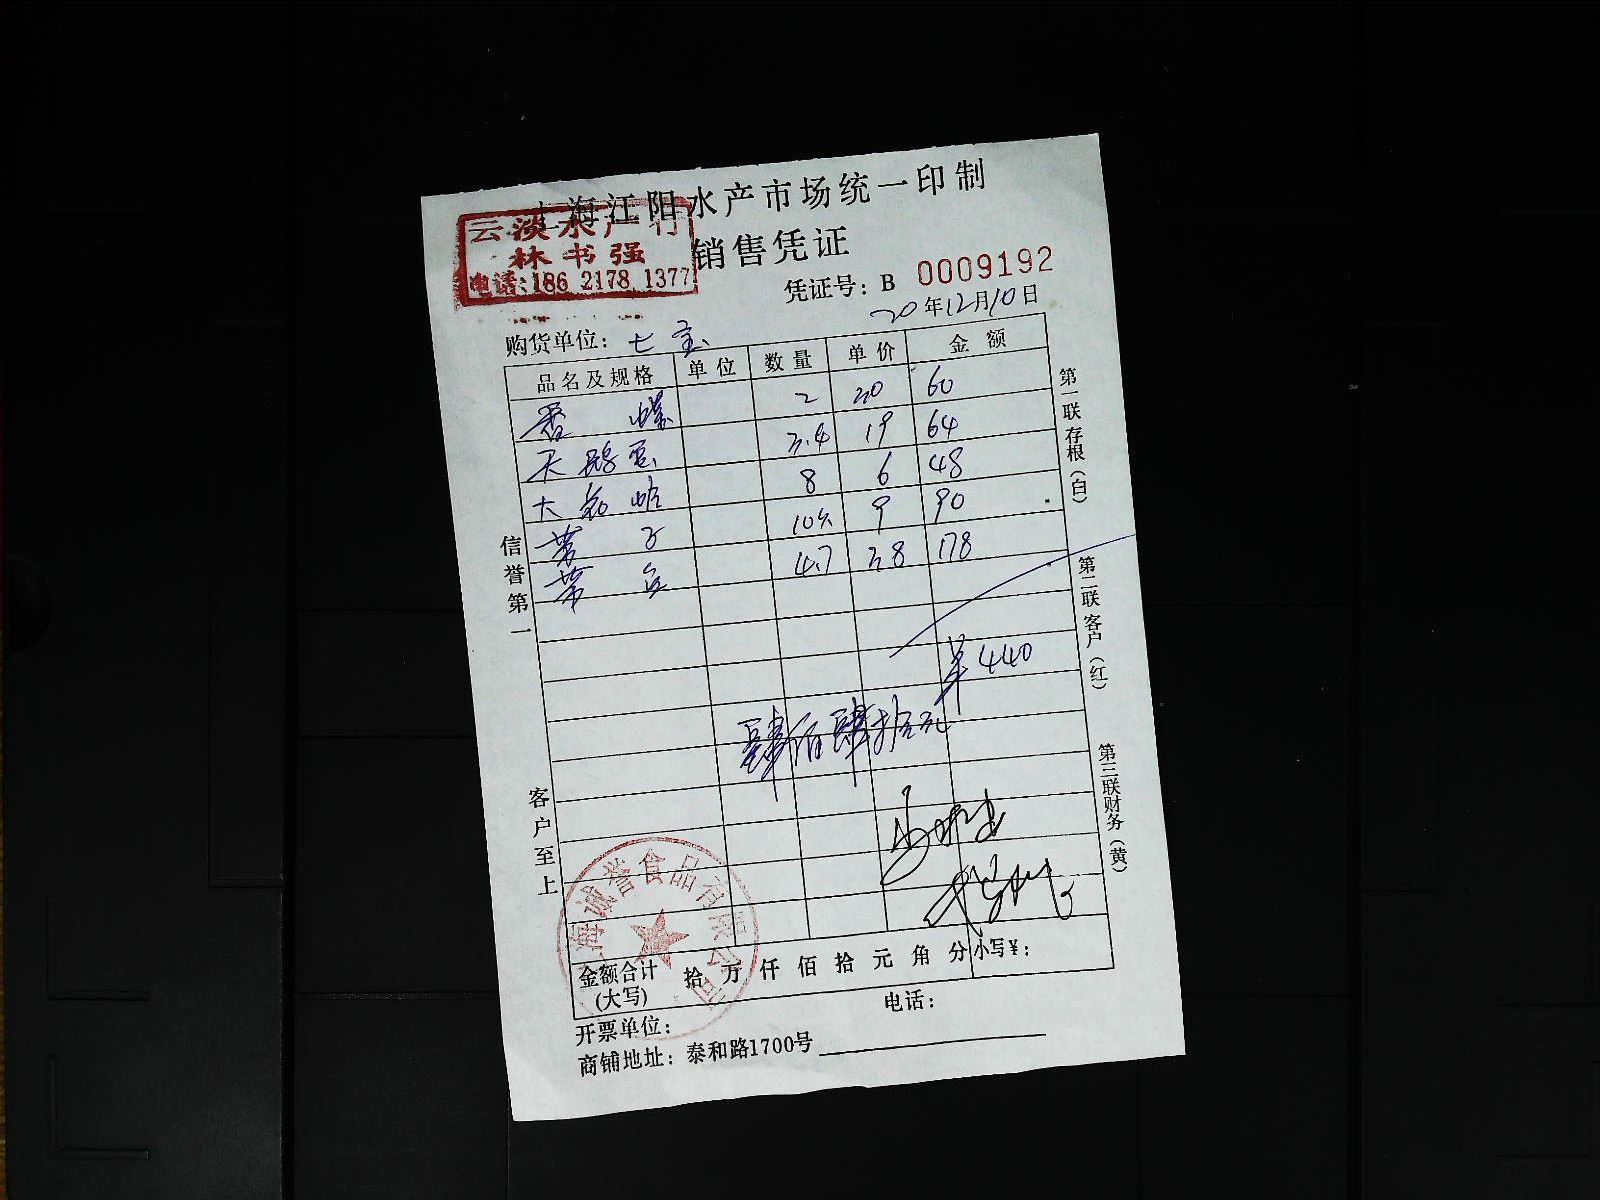 上海江阳水产市场统一印制
云淡水产行
林书强
电话:186 2178 1377
销售凭证
凭证号: B 0009192
20年12月10日
购货单位: 七宝
品名及规格 单位 数量 单价 金额
香螺 2 30 60
天鹅蛋 3.4 19 64
大 蛤 8 6 48
子 10 9 90
4.7 38 178
¥440
肆佰肆拾元
信誉第一
客户至上
第一联存根(白)
第二联客户(红)
第三联财务(黄)
上海诚誉食品有限公司
金额合计(大写) 拾 万 仟 佰 拾 元 角 分 小写¥:
开票单位: 电话:
商铺地址: 泰和路1700号